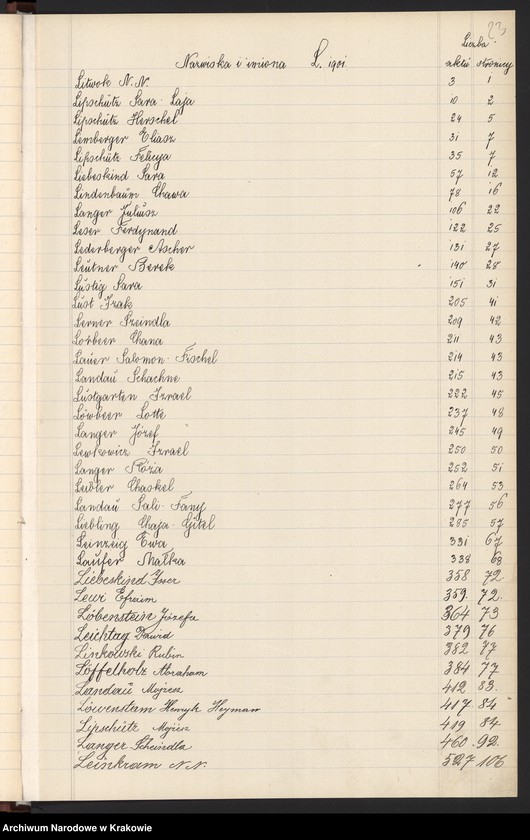 23
Liczba
Nazwiska i imiona L. 1901. aktu stronicy
Litwok N. N. 3 1
Lipschütz Sara Laja 10 2
Lipschütz Herschel 24 5
Lemberger Eliasz 31 7
Lipschütz Felicya 35 7
Liebeskind Sara 57 12
Lindenbaum Chawa 78 16
Langer Juliusz 106 22
Leser Ferdynand 122 25
Lederberger Ascher 131 27
Leutner Berek 140 28
Lustig Sara 151 31
Lust Izak 205 41
Lerner Freindla 209 42
Lorbeer Chana 211 43
Lauer Salomon Fischel 214 43
Landau Schachne 215 43
Lustgarten Izrael 222 45
Löwbeer Lotte 237 48
Langer Józef 245 49
Lewkowicz Izrael 250 50
Langer Róża 252 51
Leibler Chaskel 264 53
Landau Sali Fany 277 56
Liebling Chaja Gitel 285 57
Leinzeig Ewa 331 67
Laufer Małka 338 68
Liebeskind Isser 358 72
Lewi Efraim 359 72
Löbenstein Józefa 364 73
Leichtag Dawid 379 76
Linkowski Rubin 382 77
Löffelholz Abraham 384 77
Landau Mojżesz 412 83
Löwenstam Henryk Heyman 417 84
Lipschütz Mojżesz 419 84
Langer Scheindla 460 92
Leinkram N. N. 527 106
Archiwum Narodowe w Krakowie